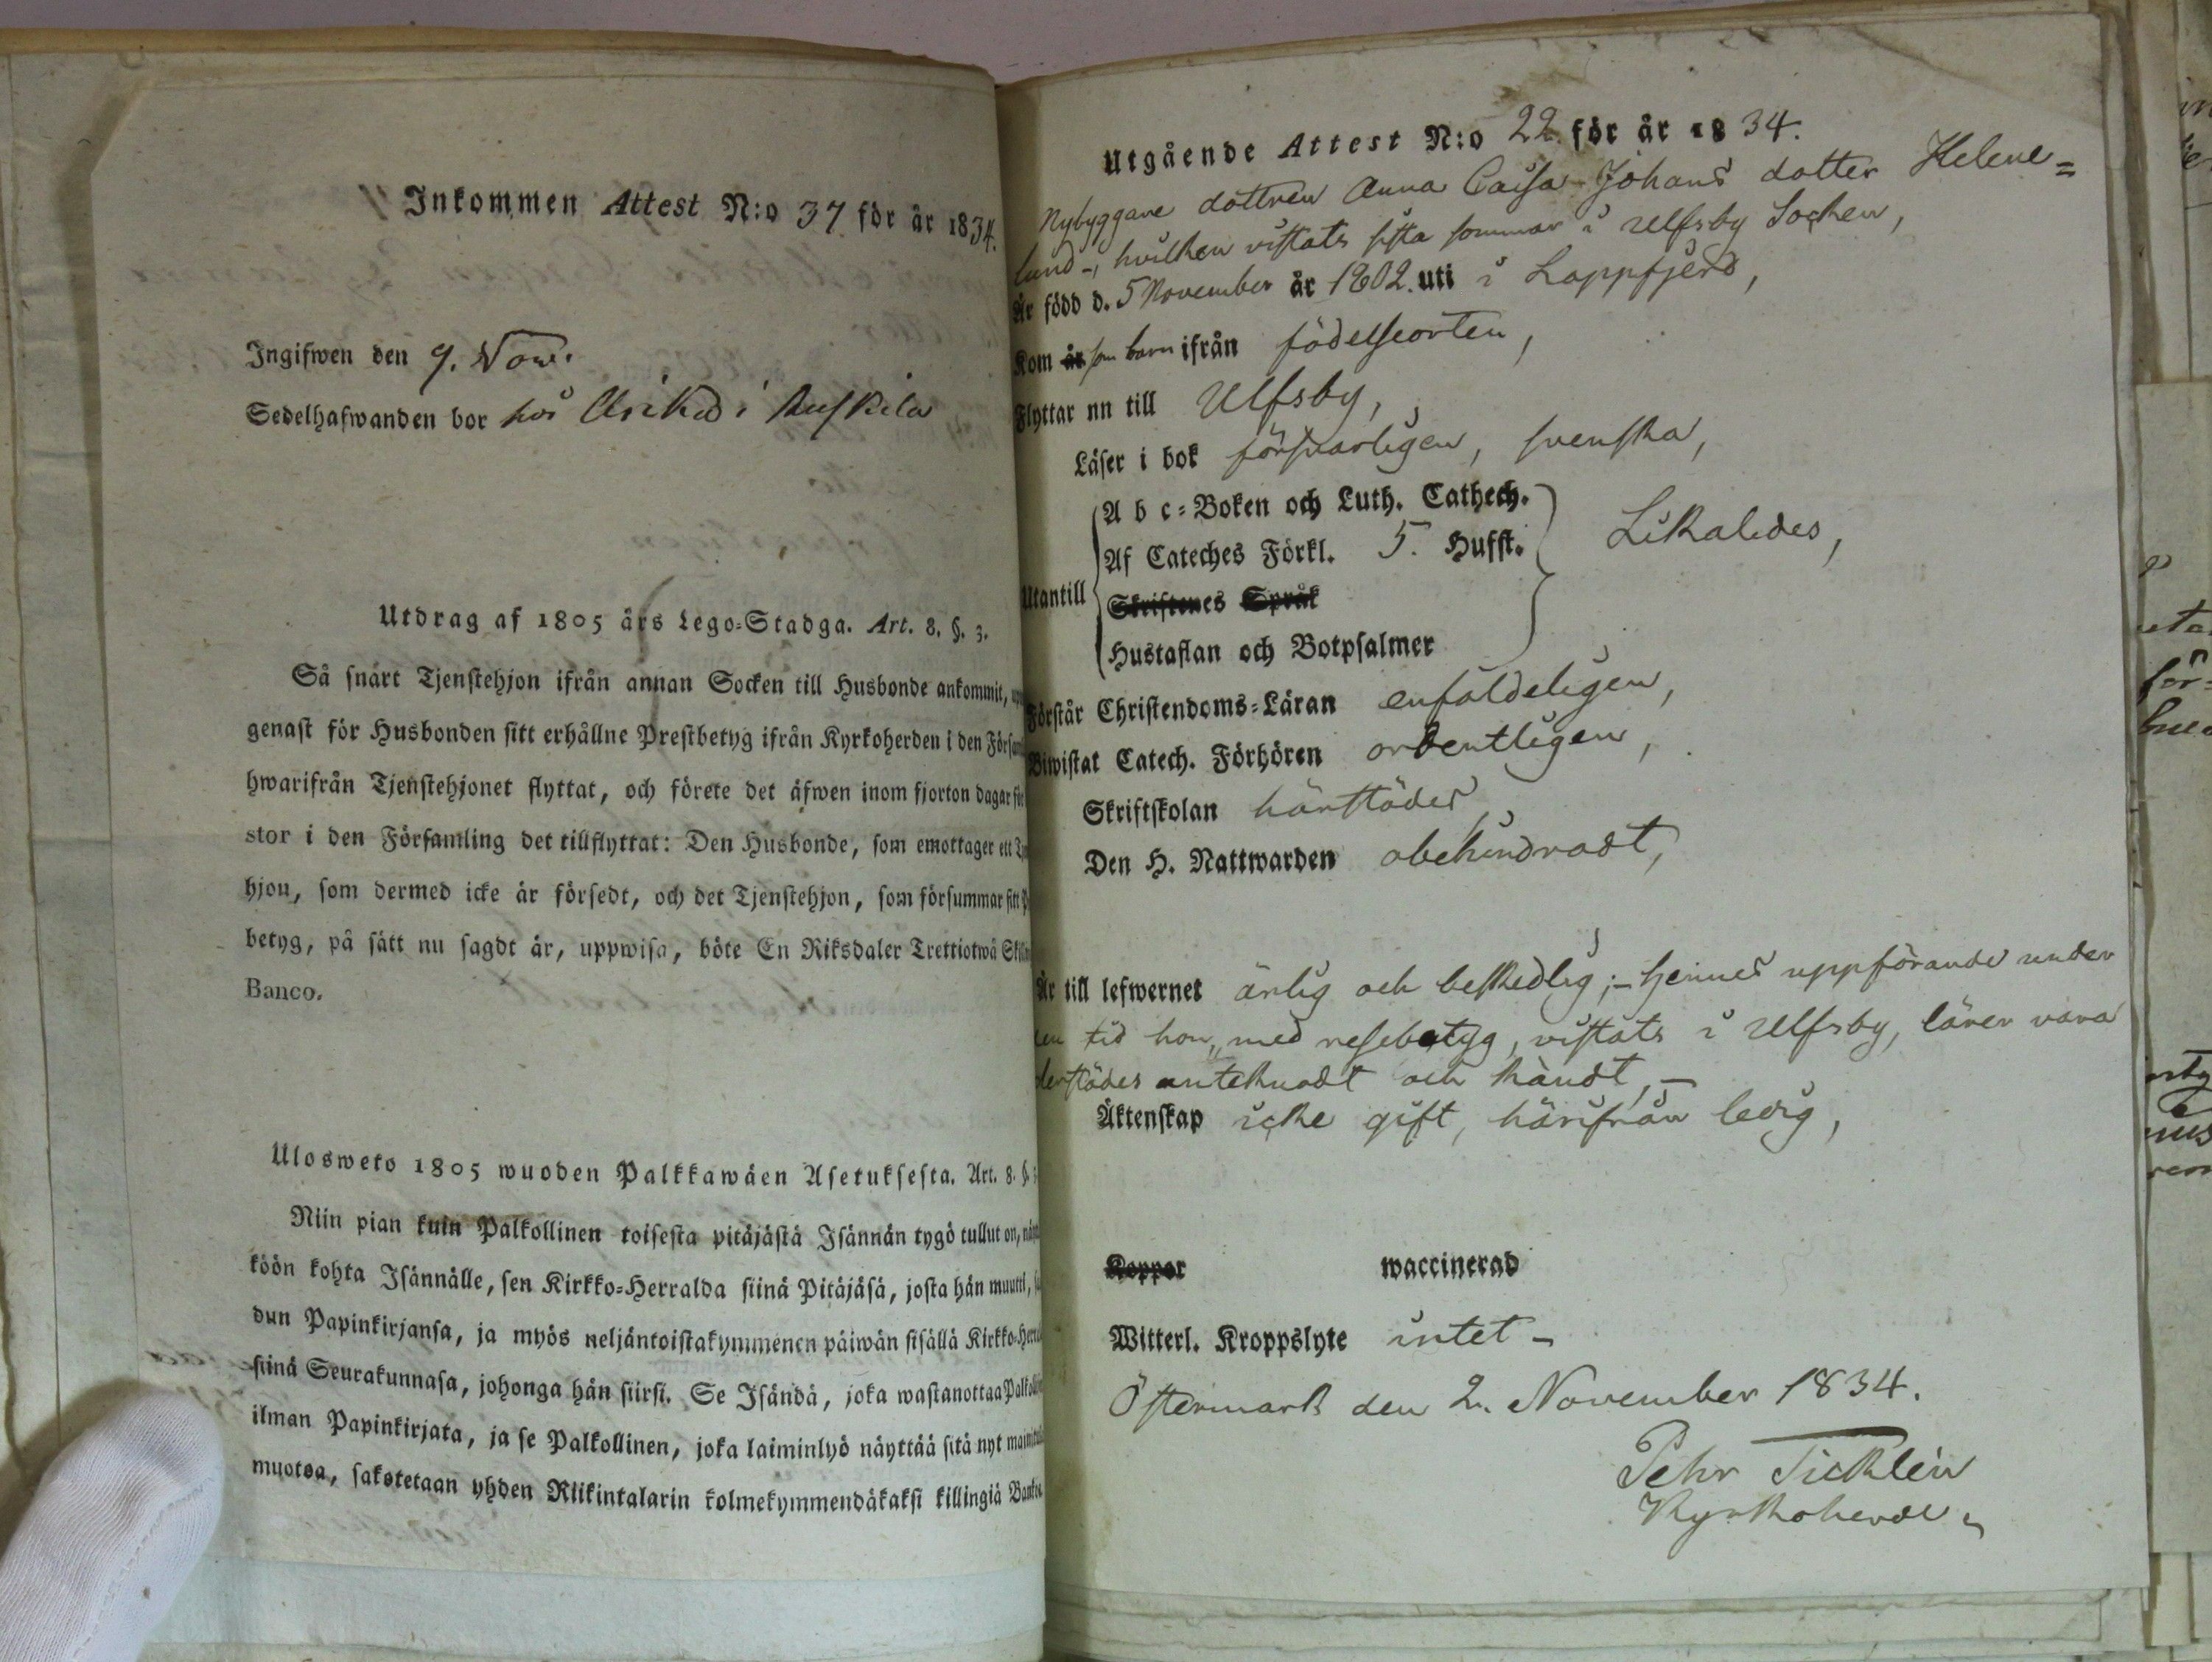 Inkommen Attest N:o 37 för år 1834.
Ingifwen den 9. Nov.
Sedelhafwanden bor hos Ulrika i
Utdrag af 1805 års Lego-Stadga. Art. 8. §. 3.
Så snart Tjenstehjon ifrån annan Socken till Husbonde ankommit,
genast för Husbonden sitt erhållne Prestbetyg ifrån Kyrkoherden i den
hwarifrån Tjenstehjonet flyttat, och förete det äfwen inom fjorton dagar
stor i den Församling det tillflyttat: Den Husbonde, som emottager ett
hjon, som dermed icke är försedt, och det Tjenstehjon, som försummar sitt
betyg, på sätt nu sagdt är, uppwisa, böte En Riksdaler Trettiotwå
Banco.
Ulosweto 1805 wuoden Palkkawäen Asetuksesta. Art. 8. §.
Niin pian kuin Palkollinen toisesta pitäjästä Isännän tygö tullut on,
köön kohta Isännälle, sen Kirkko-Herralda siinä Pitäjäsä, josta hän muutti,
dun Papinkirjansa, ja myös neljäntoistakymmenen päiwän sisällä
siinä Seurakunnasa, johonga hän siirsi. Se Isändä, joka wastanottaa
ilman Papinkirjata, ja se Palkollinen, joka laiminlyö näyttää sitä nyt
muotoa, sakotetaan yhden Riikintalarin kolmekymmendäkaksi killingiä
Utgående Attest N:o 22. för år 1834.
Nybyggare dottren Anna Caisa Johans dotter Helene=
lund-, hvilken vistats sista sommar i Ulfsby Socken,
Är född d. 5 November år 1802. uti i Lappfjerd,
Kom år som barn ifrån födelseorten,
Flyttar nu till Ulfsby,
Läser i bok försvarligen, svenska,
A b c-Boken och Luth. Cathech.
Af Cateches Förkl. 5. Hufst. Likaledes,
Utantill
Skriftenes Språk
Hustaflan och Botpsalmer
Förstår Christendoms-Läran enfaldeligen,
Biwistat Catech. Förhören ordentligen,
Skriftskolan härstädes,
Den H. Nattwarden obehindradt,
Är till lefwernet ärlig och beskedlig;- hennes uppförande under
den tid hon, med resebetyg, vistats i Ulfsby, lärer vara
derstädes anteknadt och kändt,-
Äktenskap icke gift, härifrån ledig,
Koppor waccinerad
Witterl. Kroppslyte intet-
Östermark den 2. November 1834.
Pehr Ticklén
Kyrkoherde